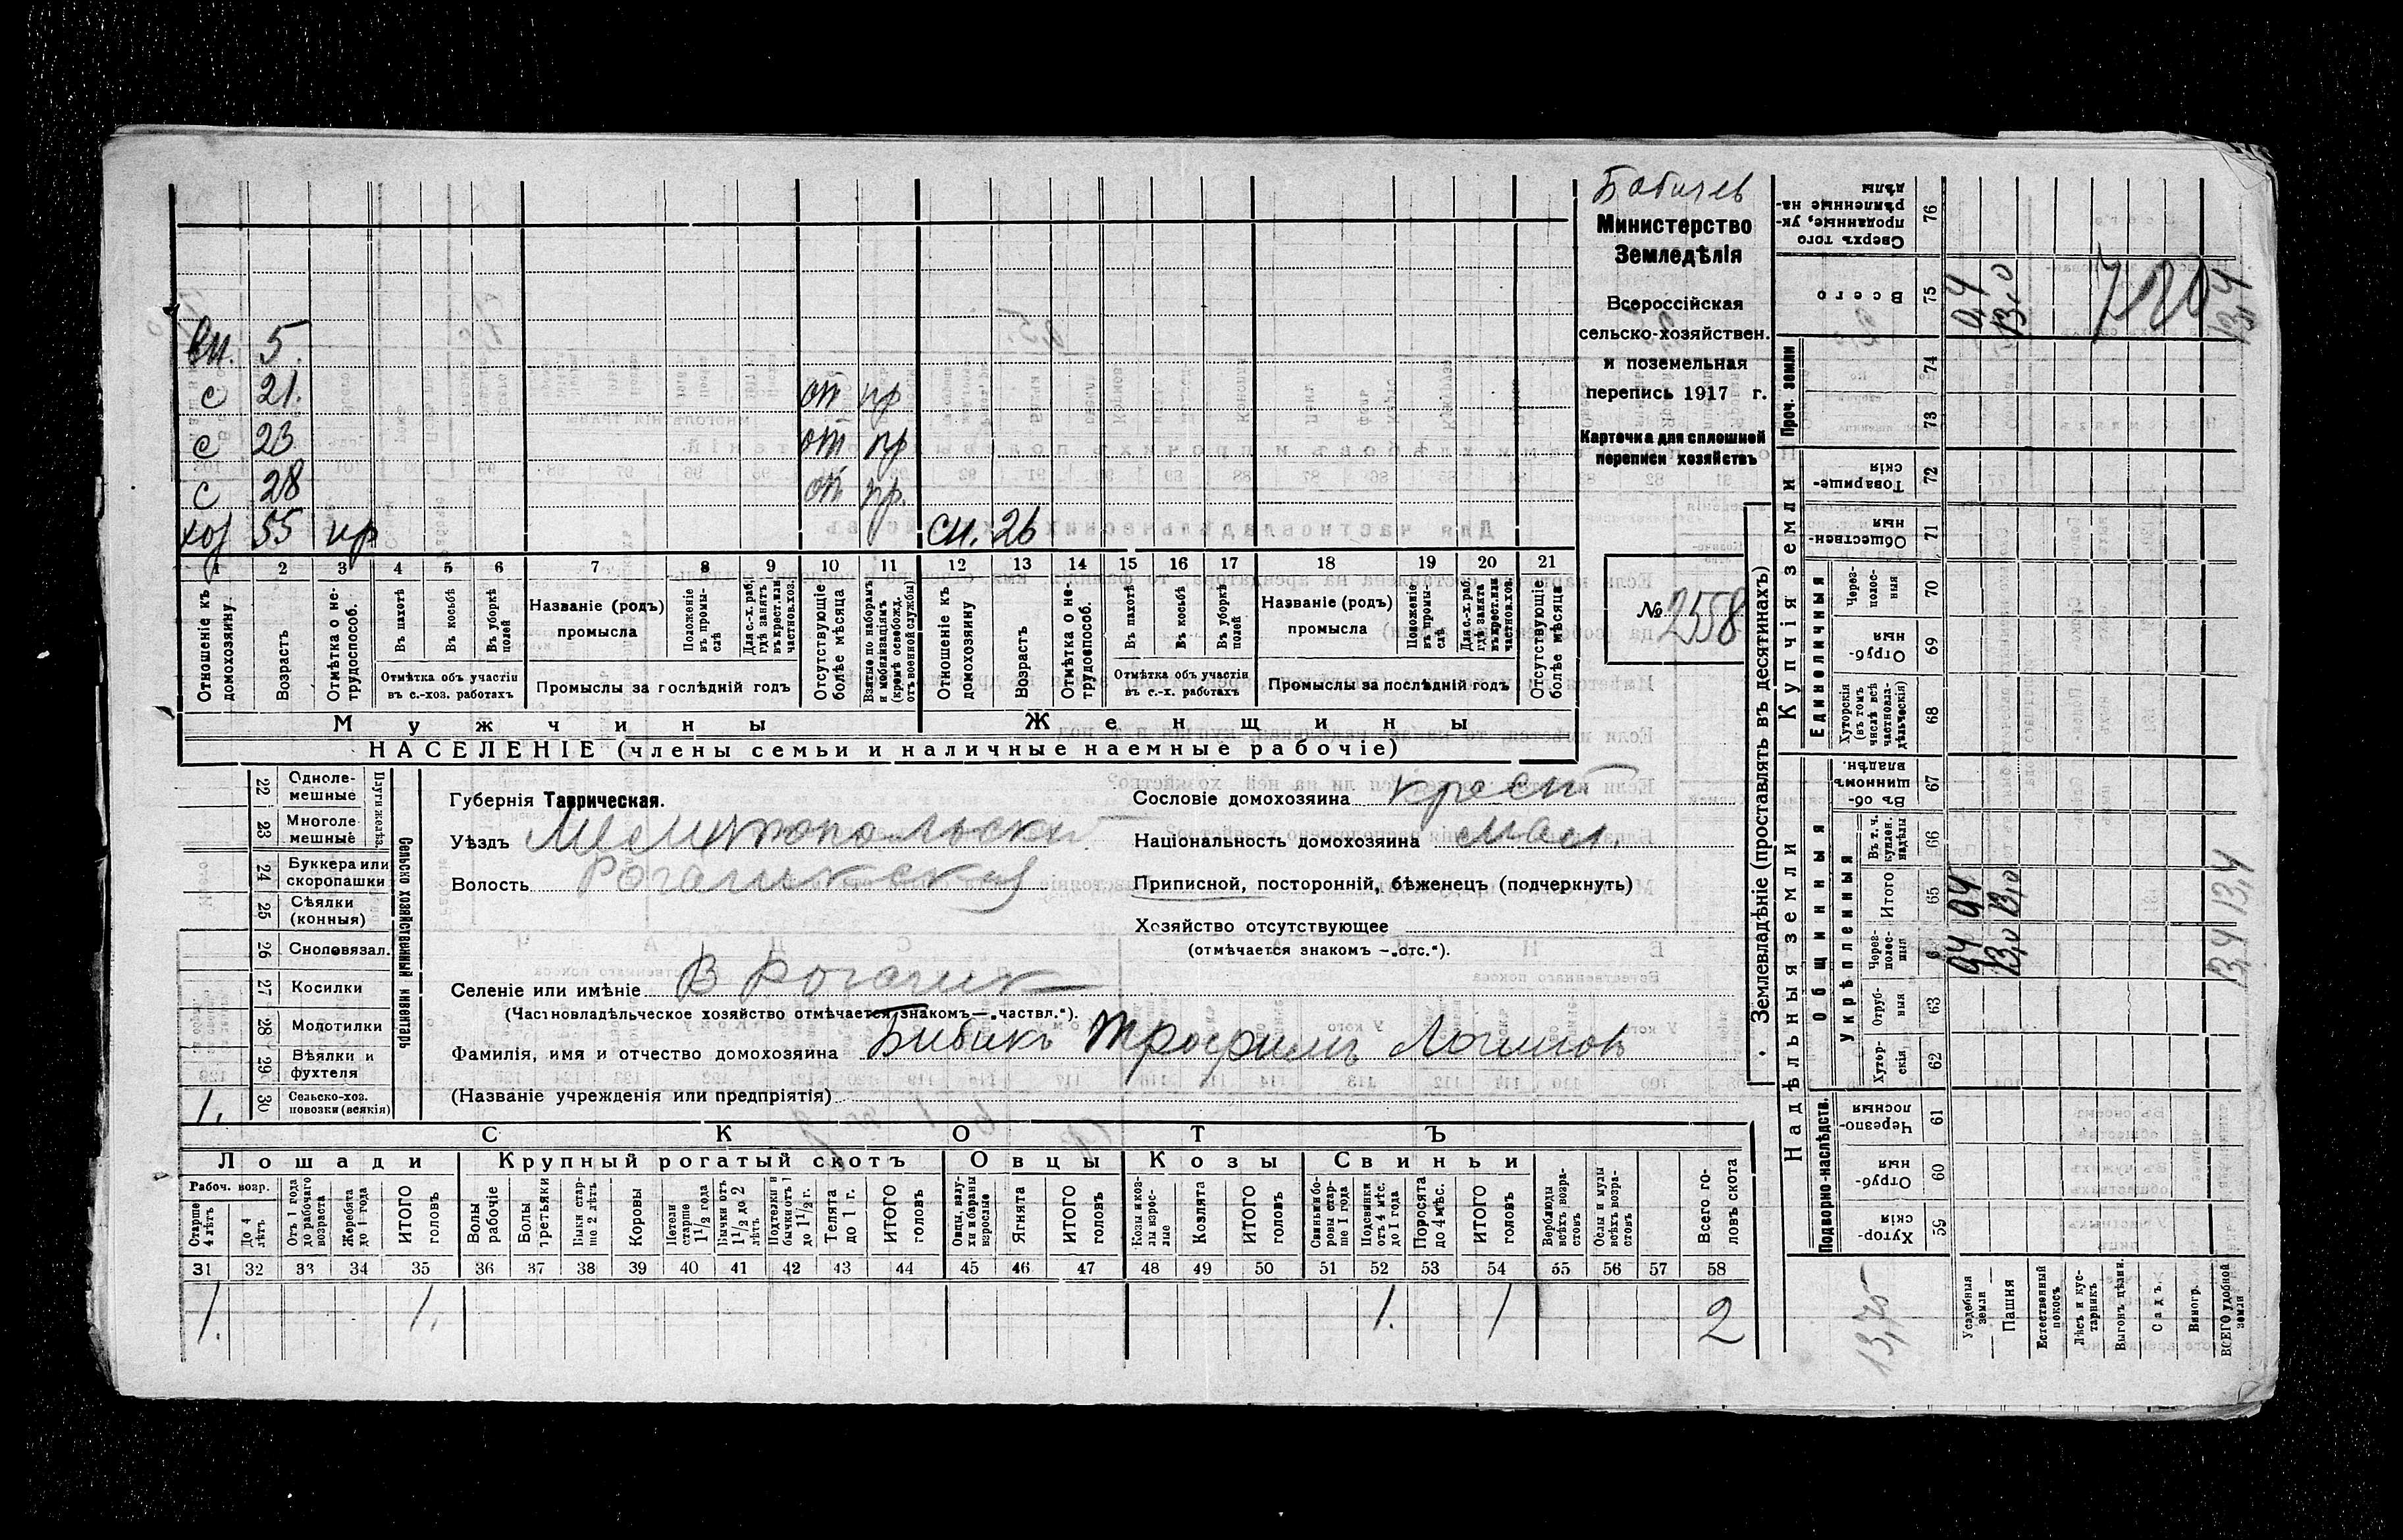 Министерство
Земледѣлія
Всероссійская
сельско-хозяйствен.
и поземельная
перепись 1917 г.
Карточка для сплошной
переписи хозяйствъ
№ 2558
Сн. 5.
с 21. от пр
с 23 от пр
с 28 от пр.
хоз 55 нр сн. 26
1 2 3 4 5 6 7 8 9 10 11 12 13 14 15 16 17 18 19 20 21
Отношеніе къ домохозяину
Возрастъ
Отмѣтка о нетрудоспособ.
Въ пахотѣ
Въ косьбѣ
Въ уборкѣ полей
Отмѣтка объ участіи въ с.-хоз. работахъ
Названіе (родъ) промысла
Положеніе въ промыслѣ
Для с.-х. раб., гдѣ занятъ въ крест. или частнов. хоз.
Промыслы за послѣдній годъ
Отсутствующіе болѣе мѣсяца
Взятые по наборамъ и мобилизаціямъ (кромѣ освобожд. отъ военной службы)
Отношеніе къ домохозяину
Возрастъ
Отмѣтка о нетрудоспособ.
Въ пахотѣ
Въ косьбѣ
Въ уборкѣ полей
Отмѣтка объ участіи въ с.-х. работахъ
Названіе (родъ) промысла
Положеніе въ промыслѣ
Для с.-х. раб. гдѣ занята въ крест. или частнов. хоз.
Промыслы за послѣдній годъ
Отсутствующіе болѣе мѣсяца
Мужчины Женщины
НАСЕЛЕНІЕ (члены семьи и наличные наемные рабочіе)
Сельско хозяйственный инвентарь
Плуги желѣз.
22 Однолемешные
23 Многолемешные
24 Буккера или скоропашки
25 Сѣялки (конныя)
26 Сноповязал.
27 Косилки
28 Молотилки
29 Вѣялки и фухтеля
30 Сельско-хоз. повозки (всякія) 1.
Губернія Таврическая.
Уѣздъ Мелитопольскій
Волость Рогачикская
Селеніе или имѣніе В Рогачик
(Частновладѣльческое хозяйство отмѣчается знакомъ—„частвл.“).
Фамилія, имя и отчество домохозяина Бибикъ Трофимъ Логиновъ
(Названіе учрежденія или предпріятія)
Сословіе домохозяина крест
Національность домохозяина мал.
Приписной, посторонній, бѣженецъ (подчеркнуть)
Хозяйство отсутствующее
(отмѣчается знакомъ —„отс.“).
СКОТЪ
Лошади Крупный рогатый скотъ Овцы Козы Свиньи
Рабоч. возр.
Старше 4 лѣтъ
До 4 лѣтъ
Отъ 1 года до рабочаго возраста
Жеребята до 1 года
ИТОГО головъ
Волы рабочіе
Волы третьяки
Быки старше 2 лѣтъ
Коровы
Нетели старше 1 1/2 года
Бычки отъ 1 1/2 до 2 лѣтъ
Подтелки и бычки отъ 1 до 1 1/2 г.
Телята до 1 г.
ИТОГО головъ
Овцы, валухи и бараны взрослые
Ягнята
ИТОГО головъ
Козы и козлы взрослые
Козлята
ИТОГО головъ
Свиньи боровы старше 1 года
Подсвинки отъ 4 мѣс. до 1 года
Поросята до 4 мѣс.
ИТОГО головъ
Верблюды всѣхъ возрастовъ
Ослы и мулы всѣхъ возрастовъ
Всего головъ скота
31 32 33 34 35 36 37 38 39 40 41 42 43 44 45 46 47 48 49 50 51 52 53 54 55 56 57 58
1. 1. 1. 1 2
Землевладѣніе (проставлять въ десятинахъ)
Надѣльныя земли Купчія земли
Подворно-наслѣдств.
Общинныя
Укрѣпленныя
Единоличныя
Проч. земли
Хуторскія 59
Отрубныя 60
Черезполосныя 61
Хуторскія 62
Отрубныя 63
Черезполосныя
Итого 65
Въ т. ч. куплен. надѣлы 66
Въ общинномъ владѣн. 67
Хуторскія (въ томъ числѣ всѣ частновладѣльческія) 68
Отрубныя 69
Черезполосныя 70
Общественныя 71
Товарищескія 72
73
74
Всего 75
Сверхъ того проданные, укрѣпленные надѣлы 76
Усадебныя земли 0,4 0,4 0,4
Пашня 13,0 13,0 13,0
Естественный покосъ
Лѣсъ и кустарникъ
Выгонъ цѣлин.
Садъ.
Виногр.
ВСЕГО удобной земли 13,4 13,4 13,4
13,75